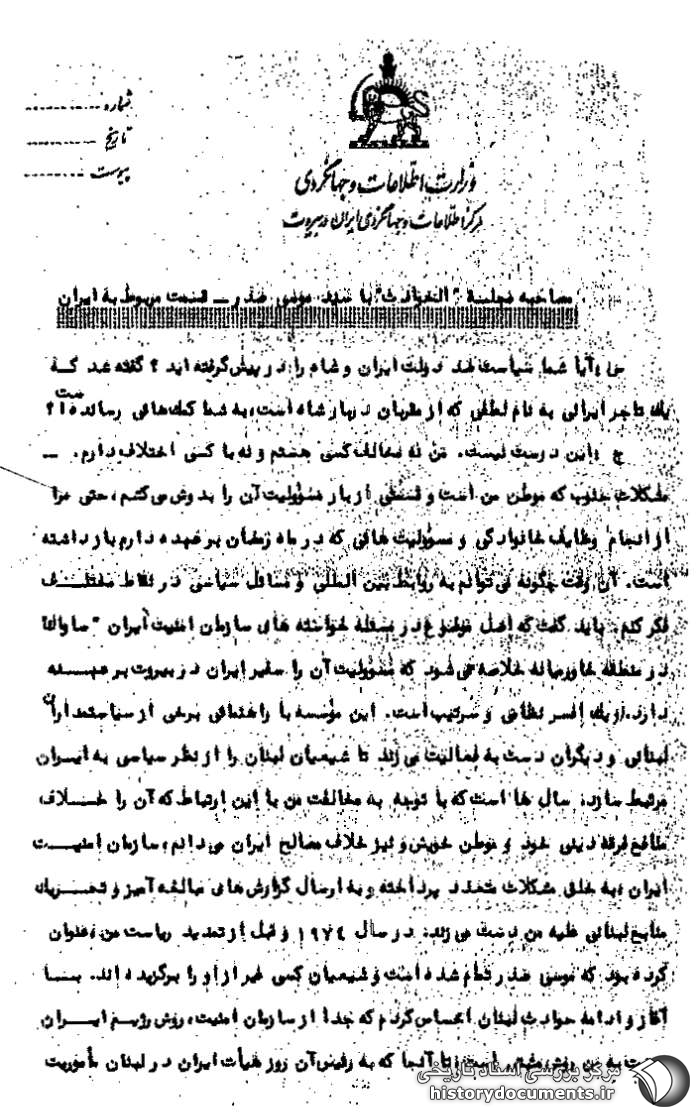 شماره
تاریخ
پیوست
وزارت اطلاعات و جهانگردی
مرکز اطلاعات و جهانگردی ایران در بیروت
مصاحبه مجلسه "الحوادث" با سید موسی صدر ــ قسمت مربوط به ایران
س : آیا شما سیاست ضد دولت ایران و شاه را در پیش گرفته اید ؟ گفته شد کـه
یک تاجر ایرانی به نام لطفی که از مقربان دربار شاه است، به شما کمک هائی رسانده است ؟
ج : این درست نیست. من نه مخالف کسی هستم و نه با کسی اختلاف دارم. ــ
مشکلات جنوب که موطن من است و قسمتی از بار مسؤولیت آن را بدوش می کشم، حتی مرا
از انجام وظایف خانوادگی و مسؤولیت هائی که در ماه رمضان بر عهده دارم باز داشته
است. آن وقت چگونه می توانم به روابط بین المللی و مسائل سیاسی در نقاط مختلـــف
فکر کنم. باید گفت که اصل موضوع در مسئله خواسته های سازمان امنیت ایران "ساواک"
در منطقه خاورمیانه خلاصه می شود که مسؤولیت آن را سفیر ایران در بیروت بر عهـــده
دارد. او یک افسر نظامی و سرتیپ است. این مؤسسه با راهنمائی برخی از سیاستمداران
لبنانی و دیگران دست به فعالیت می زند تا شیعیان لبنان را از نظر سیاسی به ایـــران
مرتبط سازد. سال ها است که با توجه به مخالفت من با این ارتباط که آن را خـــلاف
منافع فرقه دینی خود و موطن خویش و نیز خلاف مصالح ایران می دانم، سازمان امنیـــت
ایران ، به خلق مشکلات متعدد پرداخته و به ارسال گزارش های مبالغه آمیز و تحـــریک
منابع لبنانی علیه من دست می زند. در سال ۱۹۷٤ و قبل از تمدید ریاست من ، عنوان
کرده بود که موسی صدر تمام شده است و شیعیان کسی غیر از او را برگزیده اند. بـــا
آغاز و ادامه حوادث لبنان احساس کردم که جدا از سازمان امنیت، روش رژیـم ایـــران
به من روش است تا آنجا که به رئیس آن روز هیأت ایران در لبنان مأموریت
مرکز بررسی اسناد تاریخی
historydocuments.ir